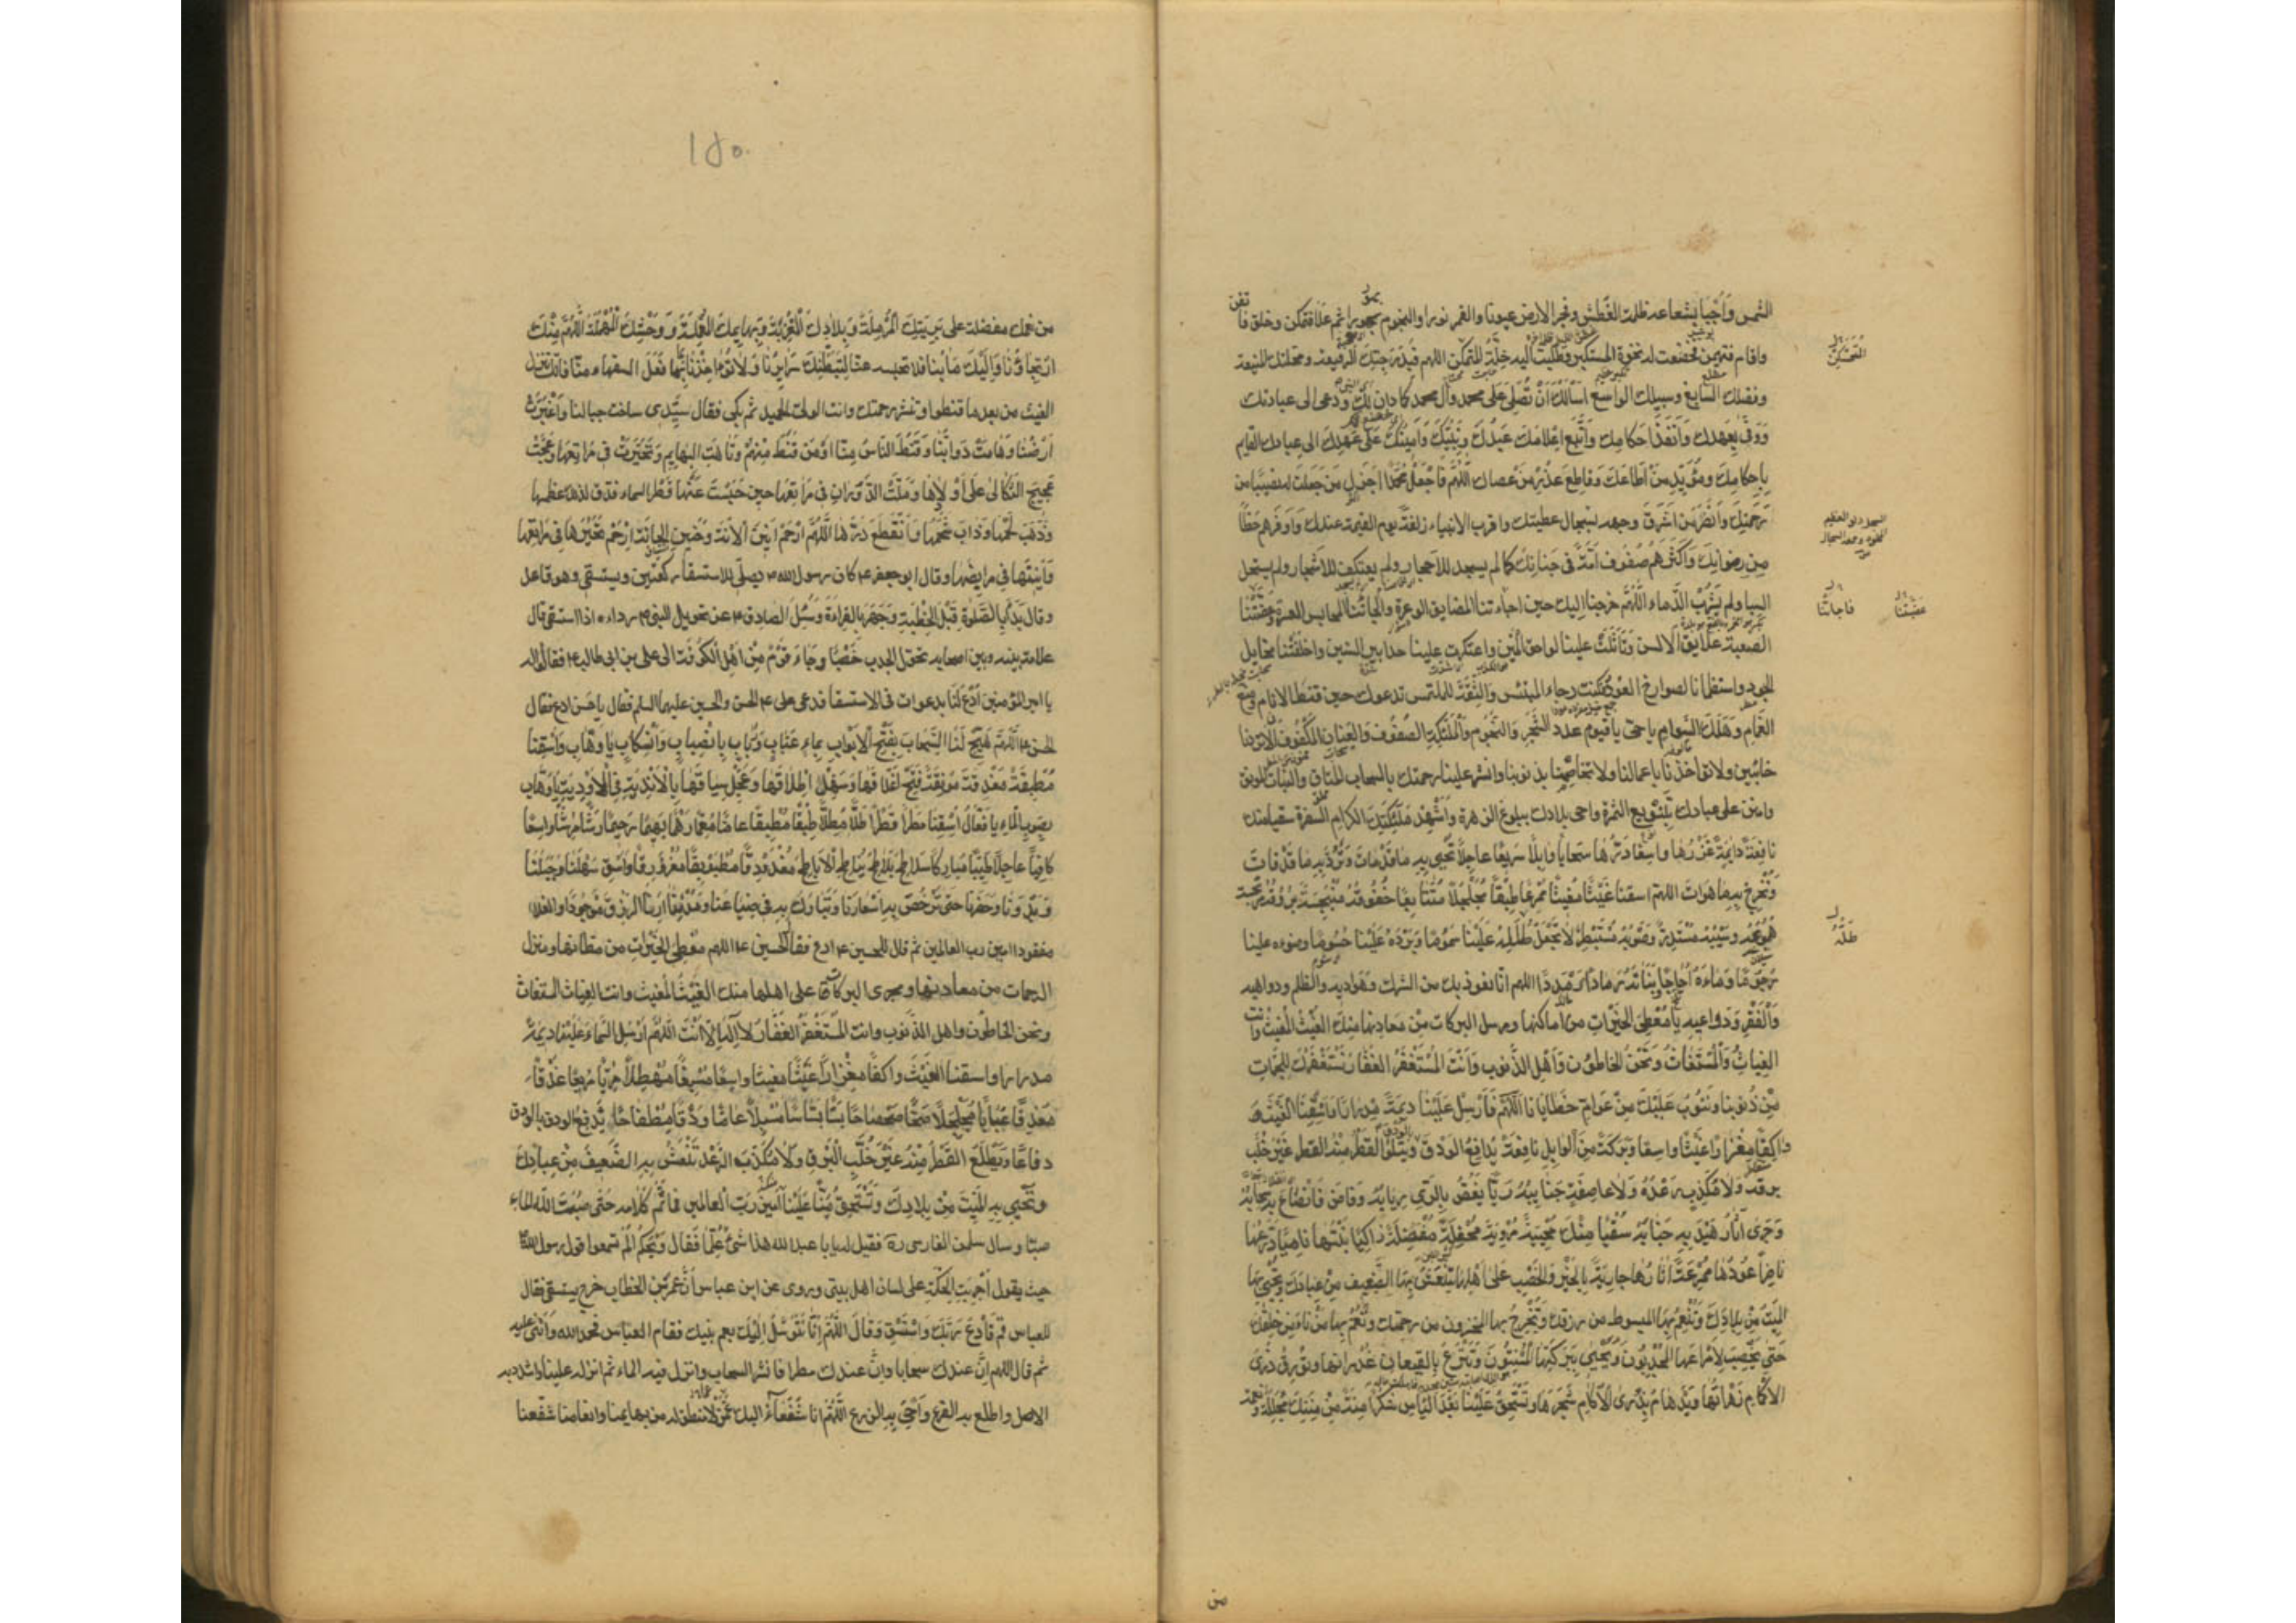 الشمس وأجبا بشعاعه ظلمة الغطش وفجر الارض عيونا والقمر نورا والنجوم بهورا ثم علا فتمكن وخلق فأتقن
واقام فتهيمن فخضعت له نخوة المستكبر وطلبت اليه خلة المتمكن اللهم فبدرجتك الرفيعة ومحلتك المنيعة
وفضلك السابغ وسبيلك الواسع اسألك أن تصلي على محمد وآل محمد كما دان لك ودعى الى عبادتك
ووفى بعهدك وأنفذ احكامك واتبع اعلامك عبدك ونبيك وأمينك على عهدك الى عبادك القايم
بأحكامك ومؤيد من اطاعك وقاطع عذر من عصاك اللهم فاجعل محمدا اجزل من جعلت له نصيبا من
رحمتك وانضر من اشرق وجهه بسجال عطيتك واقرب الانبياء زلفة يوم القيمة عندك واوفرهم حظا
من رضوانك وأكثرهم صفوف أمة في جناتك كما لم يسجد للأحجار ولم يعتكف للأشجار ولم يستحل
السبا ولم يشرب الدماء اللهم خرجنا اليك حين اجاءتنا المضايق الوعرة والجأتنا المحابس العسرة وعضتنا
الصعبة علايق الالسن وتأثلت علينا لواحق المين واعتكرت علينا حدابير السنين واخلفتنا مخايل
الجود واستظمأنا لصوارخ العود فكنت رجاء المبتئس والثقة للملتمس ندعوك حين قنط الانام ومنع
الغمام وهلك السوام يا حي يا قيوم عدد الشجر والنجوم والملئكة الصفوف والعنان المكفوف لا تردنا
خائبين ولا تؤاخذنا باعمالنا ولا تخاصمنا بذنوبنا وانشر علينا رحمتك بالسحاب المتاق والنبات المونق
وامنن على عبادك بتنويع الثمرة واحي بلادك ببلوغ الزهرة وأشهد ملئكتك الكرام السفرة سقيا منك
نافعة دايمة غزرها واسعا درها سحابا وابلا سريعا عاجلا تحيي به ما قد مات وترد به ما قد فات
وتخرج به ما هو آت اللهم اسقنا غيثا مغيثا ممرعا طبقا مجلجلا متتابعا خفوقه منبجسة بروقه مرتجسة
هموعه وسيبه مستدر وصوبه مستبطر لا تجعل ظله علينا سموما وبرده علينا حسوما وضوءه علينا
رجوما وماءه أجاجا ونباته رمادا رمددا اللهم انا نعوذ بك من الشرك وهواديه والظلم ودواهيه
والفقر ودواعيه يا معطي الخيرات من اماكنها ومرسل البركات من معادنها منك الغيث المغيث وانت
الغياث والمستغاث ونحن الخاطؤن وأهل الذنوب وأنت المستغفر الغفار نستغفرك للجمات
من ذنوبنا ونتوب عليك من عوام خطايانا اللهم فأرسل علينا ديمة مدرارا واسقنا الغيث
واكفا مغزارا غيثا واسعا وبركة من الوابل نافعة يدافع الودق ويتلو القطر منه القطر غير خلب
برقه ولا مكذب رعده ولا عاصفة جنايبه ريا يغص بالري ربابه وفاض فانصاع به سحابه
وجرى آثار هيدبه حبابه سقيا منك محيية مروية محفلة مفضلة زاكيا نبتها ناميا زرعها
ناضرا عودها ممرعة آثارها جارية بالخير والخصب على أهلها تنعش بها الضعيف من عبادك وتحيي بها
الميت من بلادك وتنعم بها المبسوط من رزقك وتخرج بها المخزون من رحمتك وتعم بها من نأى من خلقك
حتى يخصب لامراعها المجدبون ويحيي ببركتها المسنتون وتترع بالقيعان غدرانها وتورق ذرى
الآكام زهراتها ويدهام بذرى الآكام شجرها وتستحق علينا بعد اليأس شكرا منة من مننك مجللة ونعمة
المتمكن
السجل دلو العظيم
المملوء وجمعه السجال
عضتنا
فاجأتنا
ظله
من
١٥٠
من نعمك مفضلة على بريتك المرملة وبلادك المغربة وبهايمك المعملة ووحشك المهملة اللهم منك
ارتجاؤنا وإليك مآبنا فلا تحبسه عنا لتبطنك سرايرنا ولا تؤاخذنا بما فعل السفهاء منا فانك تنزل
الغيث من بعد ما قنطوا وتنشر رحمتك وانت الولي الحميد ثم بكى فقال سيدي ساخت جبالنا وأغبرت
أرضنا وهامت دوابنا وقنط الناس منا او من قنط منهم وتاهت البهايم وتحيرت في مراتعها وعجت
عجيج الثكالى على أولادها وملت الدوران في مراتعها حين حبست عنها قطر السماء فدق لذلك عظمها
وذهب لحمها وذاب شحمها وانقطع درها اللهم ارحم أنين الآنة وحنين الحانة ارحم تحيرها في مراتعها
وأنينها في مرابضها وقال ابو جعفر ع كان رسول الله ص يصلي للاستسقاء ركعتين ويستسقي وهو قاعد
وقال بدأ بالصلوة قبل الخطبة وجهر بالقراءة وسئل الصادق ع عن تحويل النبي ص رداءه اذا استسقى قال
علامة بينه وبين اصحابه تحول الجدب خصبا وجاء قوم من أهل الكوفة الى علي بن ابي طالب ع فقالوا له
يا امير المؤمنين ادع لنا بدعوات في الاستسقا فدعى علي ع الحسن والحسين عليهما السلم فقال يا حسن ادع فقال
الحسن ع اللهم هيج لنا السحاب بفتح الابواب بماء عباب ورباب بانصباب وانسكاب يا وهاب واسقنا
مطبقة مغدقة مونقة فتح اغلاقها وسهل اطلاقها وعجل سياقها بالأندية في الأودية يا وهاب
بصوب الماء يا فعال اسقنا مطرا قطرا طلا مطلا طبقا مطبقا عاما معما رهما بهما رحيما رشا مرشا واسعا
كافيا عاجلا طيبا مباركا سلاطح بلاطح يناطح الاباطح مغدودقا مطبوبقا مغرورقا واسق سهلنا وجبلنا
وبدونا وحضرنا حتى ترخص به اسعارنا وتبارك به في ضياعنا ومدننا أرنا الرزق موجودا والغلا
مفقودا امين رب العالمين ثم قال للحسين ع ادع فقال الحسين ع اللهم معطي الخيرات من مظانها ومنزل
الرحمات من معادنها ومجري البركات على اهلها منك الغيث المغيث وانت الغياث المستغاث
ونحن الخاطؤن واهل الذنوب وانت المستغفر الغفار لا إله إلا أنت اللهم ارسل السماء علينا ديمة
مدرارا واسقنا الغيث واكفا مغزارا غيثا مغيثا واسعا مسبغا مهطلا مريا مريعا غدقا
مغدقا عبابا مجلجلا سحا سحساحا بسا بساسا مسبلا عاما ودقا مطفاحا يدفع الودق بالودق
دفاعا ويطلع القطر منه غير خلب البرق ولا مكذب الرعد تنعش به الضعيف من عبادك
وتحيي به الميت من بلادك وتستحق به علينا آمين رب العالمين فما تم كلامه حتى صب الله الماء
صبا وسال سلمن الفارسي ره فقيل له يا با عبد الله هذا شئ علماه فقال ويحكم ألم تسمعوا قول رسول الله ص
حيث يقول أجريت الحكمة على لسان اهل بيتي وروي عن ابن عباس أن عمر بن الخطاب خرج يستسقي فقال
للعباس قم فادع ربك واستسق وقال اللهم إنا نتوسل اليك بعم نبيك فقام العباس فحمد الله وأثنى عليه
ثم قال اللهم ان عندك سحابا وان عندك مطرا فانشر السحاب وانزل فيه الماء ثم انزله علينا واشدد به
الاصل واطلع به الفرع وأحي به الزرع اللهم انا شفعاء اليك عمن لا منطق له من بهايمنا وانعامنا شفعنا